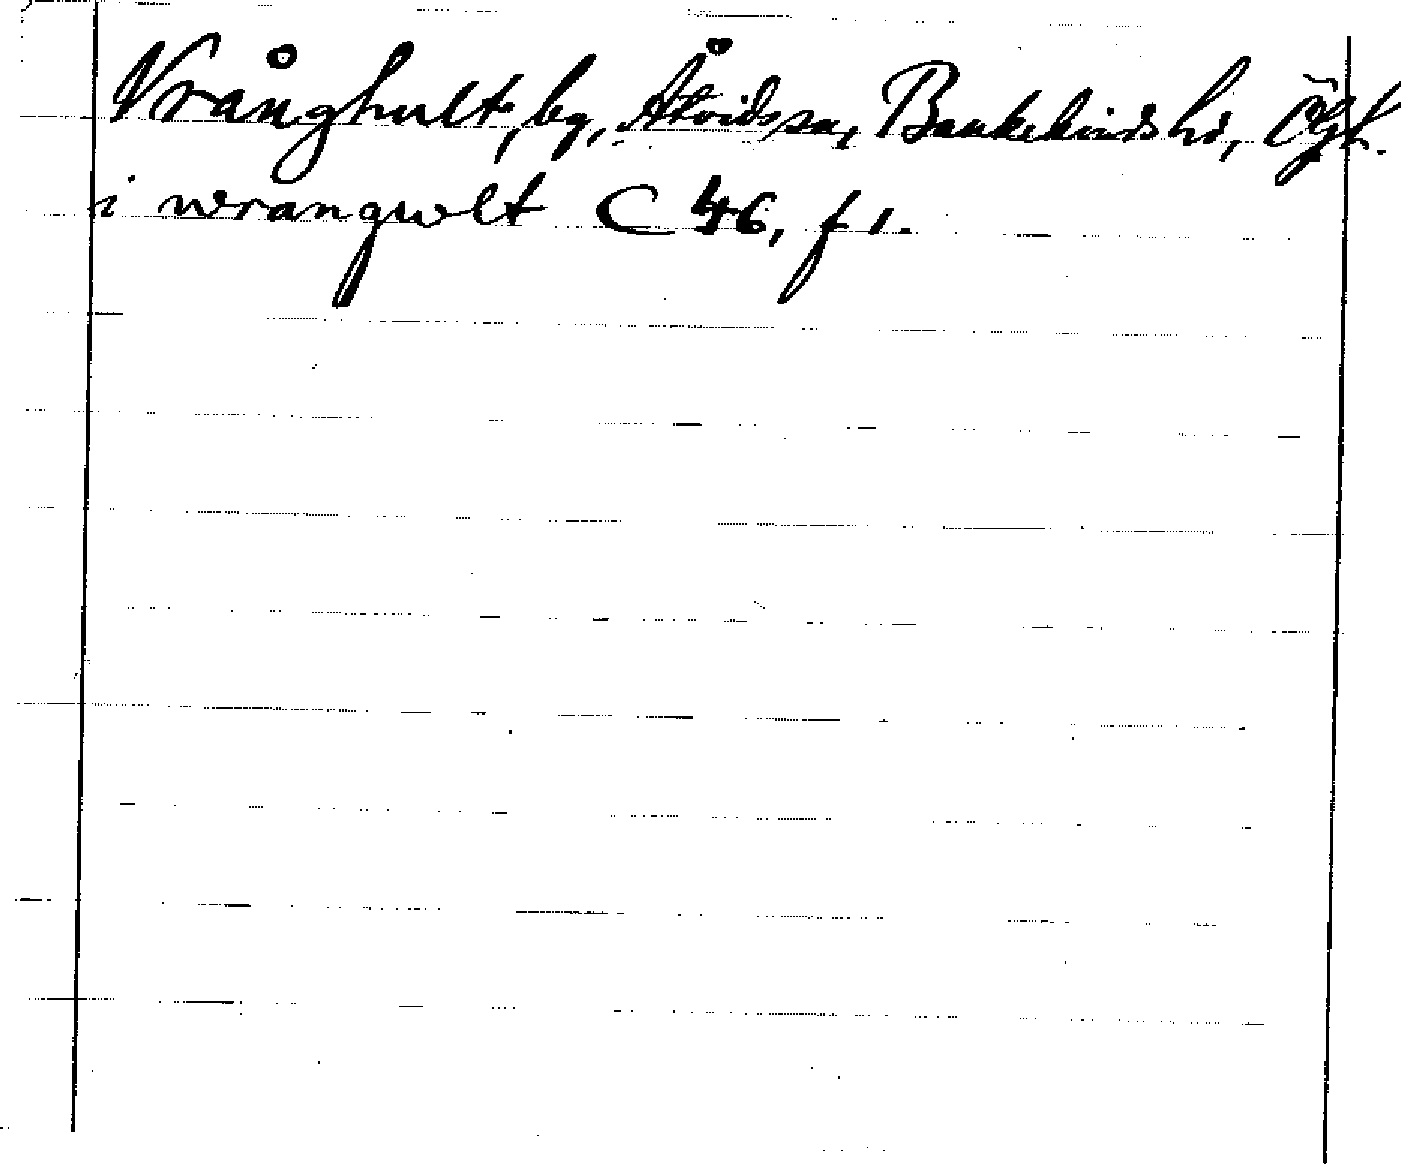 Vrånghult, by, Åtvids sn, Bankekinds hd, Ögt.
i wrangwlt C 46, f 1.